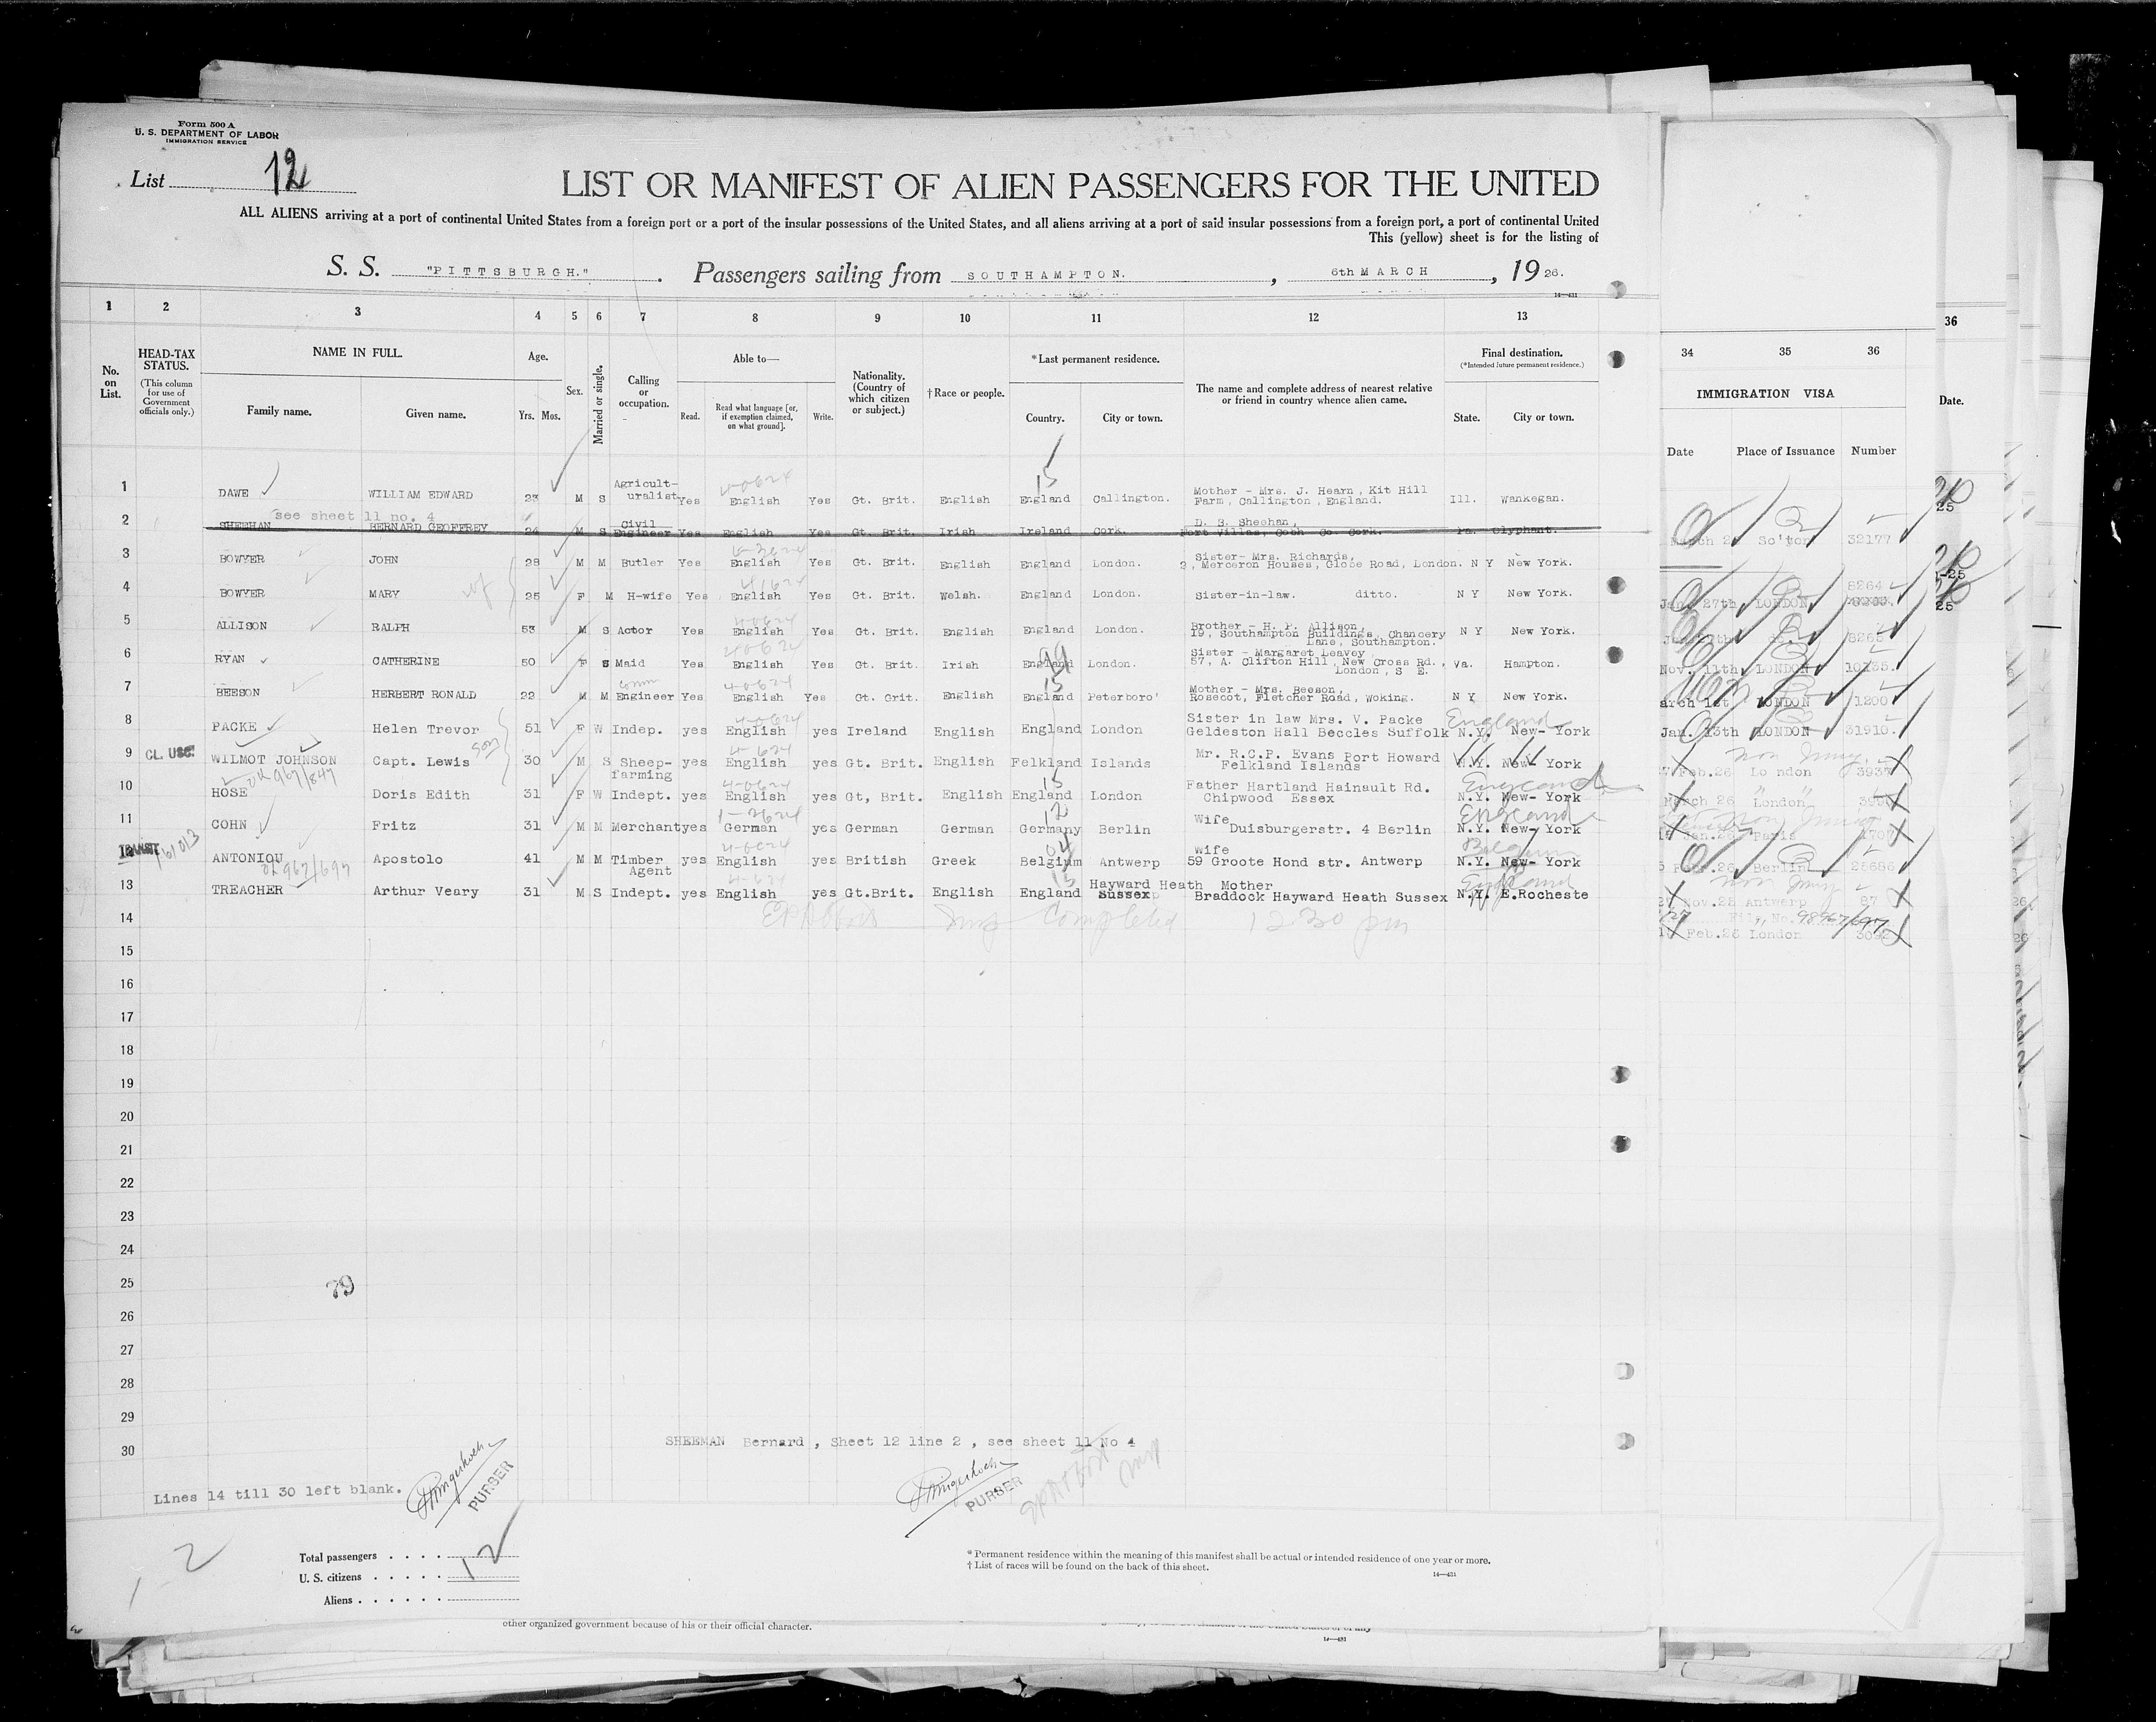 Form 500 A
U. S. DEPARTMENT OF LABOR
IMMIGRATION SERVICE
List 12
LIST OR MANIFEST OF ALIEN PASSENGERS FOR THE UNITED
ALL ALIENS arriving at a port of continental United States from a foreign port or a port of the insular possessions of the United States, and all aliens arriving at a port of said insular possessions from a foreign port, a port of continental United
This (yellow) sheet is for the listing of
S. S. "PITTSBURGH." Passengers sailing from SOUTHAMPTON. , 6th MARCH , 19 26.
14—431
1 2 3 4 5 6 7 8 9 10 11 12 13
No. on List.
HEAD-TAX STATUS.
(This column for use of Government officials only.)
NAME IN FULL.
Family name. Given name.
Age.
Yrs. Mos.
Sex.
Married or single.
Calling or occupation.
Able to—
Read. Read what language [or, if exemption claimed, on what ground]. Write.
Nationality. (Country of which citizen or subject.)
† Race or people.
* Last permanent residence.
Country. City or town.
The name and complete address of nearest relative or friend in country whence alien came.
Final destination.
(*Intended future permanent residence.)
State. City or town.
34 35 36
IMMIGRATION VISA
Date Place of Issuance Number
36
Date.
1 DAWE WILLIAM EDWARD 23 M S Agricult-uralist Yes English Yes Gt. Brit. English England Callington. Mother - Mrs. J. Hearn, Kit Hill Farm, Callington, England. Ill. Wankegan.
see sheet 11 no. 4
2 SHEEHAN BERNARD GEOFFREY 24 M S Civil Engineer Yes English Yes Gt. Brit. Irish Ireland Cork. D. S. Sheehan, Port Villas, Cobh Co Cork. Pa. Olyphant.
3 BOWYER JOHN 28 M M Butler Yes English Yes Gt. Brit. English England London. Sister- Mrs. Richards, 2, Merceron Houses, Globe Road, London. N Y New York.
4 BOWYER MARY wf 25 F M H-wife Yes English Yes Gt. Brit. Welsh. England London. Sister-in-law. ditto. N Y New York.
5 ALLISON RALPH 53 M S Actor Yes English Yes Gt. Brit. English England London. Brother - H. P. Allison, 19, Southampton Buildings, Chancery Lane, Southampton. N Y New York.
6 RYAN CATHERINE 50 F S Maid Yes English Yes Gt. Brit. Irish England London. Sister - Margaret Leavey, 57, A. Clifton Hill, New Cross Rd., London, S E. Va. Hampton.
7 BEESON HERBERT RONALD 22 M M Engineer Yes English Yes Gt. Grit. English England Peterboro' Mother - Mrs. Beeson, Rosecot, Fletcher Road, Woking. N Y New York.
8 PACKE Helen Trevor 51 F W Indep. yes English yes Ireland English England London Sister in law Mrs. V. Packe Geldeston Hall Beccles Suffolk N.Y. New- York
England
9 CL. USC. WILMOT JOHNSON Capt. Lewis 30 M S Sheep-farming yes English yes Gt. Brit. English Felkland Islands Mr. R.C.P. Evans Port Howard Felkland Islands N.Y. New York
10 HOSE Doris Edith 31 F W Indept. yes English yes Gt, Brit. English England London Father Hartland Hainault Rd. Chipwood Essex N.Y. New- York
England
11 COHN Fritz 31 M M Merchant yes German yes German German Germany Berlin Wife Duisburgerstr. 4 Berlin N.Y. New- York
England
ANTONIOU Apostolo 41 M M Timber Agent yes English yes British Greek Belgium Antwerp Wife 59 Groote Hond str. Antwerp N.Y. New- York
Belgium
13 TREACHER Arthur Veary 31 M S Indept. yes English yes Gt.Brit. English England Hayward Heath Sussex Mother Braddock Hayward Heath Sussex N.Y. E.Rocheste
England
14 Completed 12 30 pm
15
16
17
18
19
20
21
22
23
24
25
79
26
27
28
29
30
SHEEMAN Bernard , Sheet 12 line 2 , see sheet 11 No 4
Lines 14 till 30 left blank.
PURSER
PURSER
Total passengers
U. S. citizens 12
Aliens
* Permanent residence within the meaning of this manifest shall be actual or intended residence of one year or more.
† List of races will be found on the back of this sheet.
14—431
other organized government because of his or their official character.
So'ton 32177
Jan. 27th LONDON 8264
8265
Nov. 11th LONDON 10235.
arch 1st LONDON 1200
Jan. 13th LONDON 31910.
Feb.26 London 3937
March 26 London
Paris
Feb.26 Berlin 28686
Nov.25 Antwerp 87
98967/697
Feb.26 London 3092